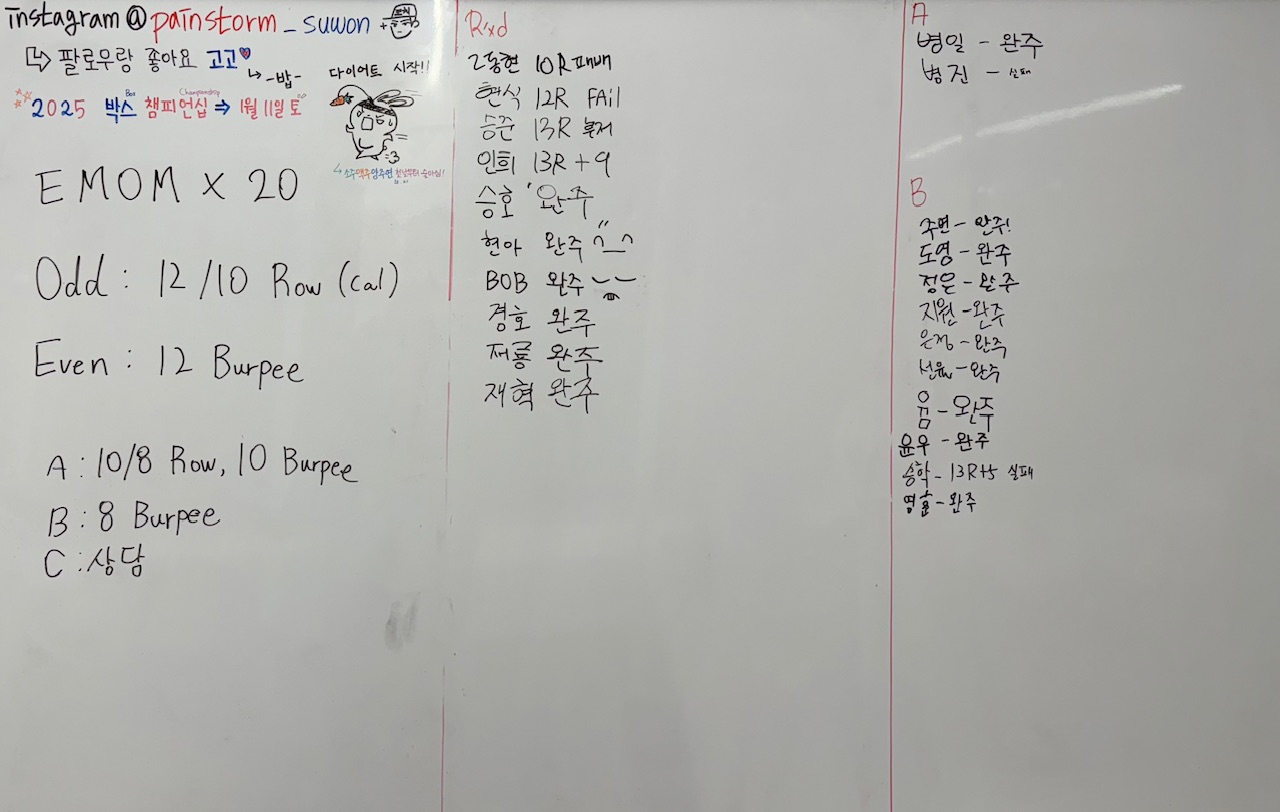 instagram@painstorm_suwon
↳ 팔로우랑 좋아요 고고♥
↳ -밥-
다이어트 시작!!
Box Championship
2025 박스 챔피언십 ⇒ 1월 11일 토
EMOM X 20
Odd : 12/10 Row (cal)
Even : 12 Burpee
A : 10/8 Row, 10 Burpee
B : 8 Burpee
C : 상담
Rxd
동현 10R
현식 12R FAil
승준 13R
인희 13R + 9
승호 완주
현아 완주
BOB 완주
경호 완주
재룡 완주
재혁 완주
A
병일 - 완주
병진 - 실패
B
주연 - 완주!
도영 - 완주
정은 - 완주
지원 - 완주
은정 - 완주
선율 - 완주
윰 - 완주
윤우 - 완주
승학 - 13R+5 실패
영훈 - 완주